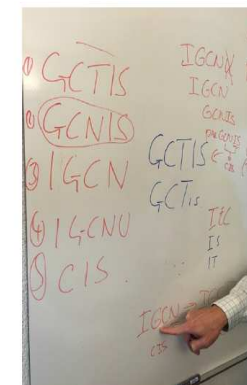 ① GCTIS
② GCNIS
③ IGCN
④ IGCNU
⑤ CIS
IGCN
IGCN
GCNIS
GCTIS
CIS
GCTIS
IEC
IS
IT
IGCN
CIS